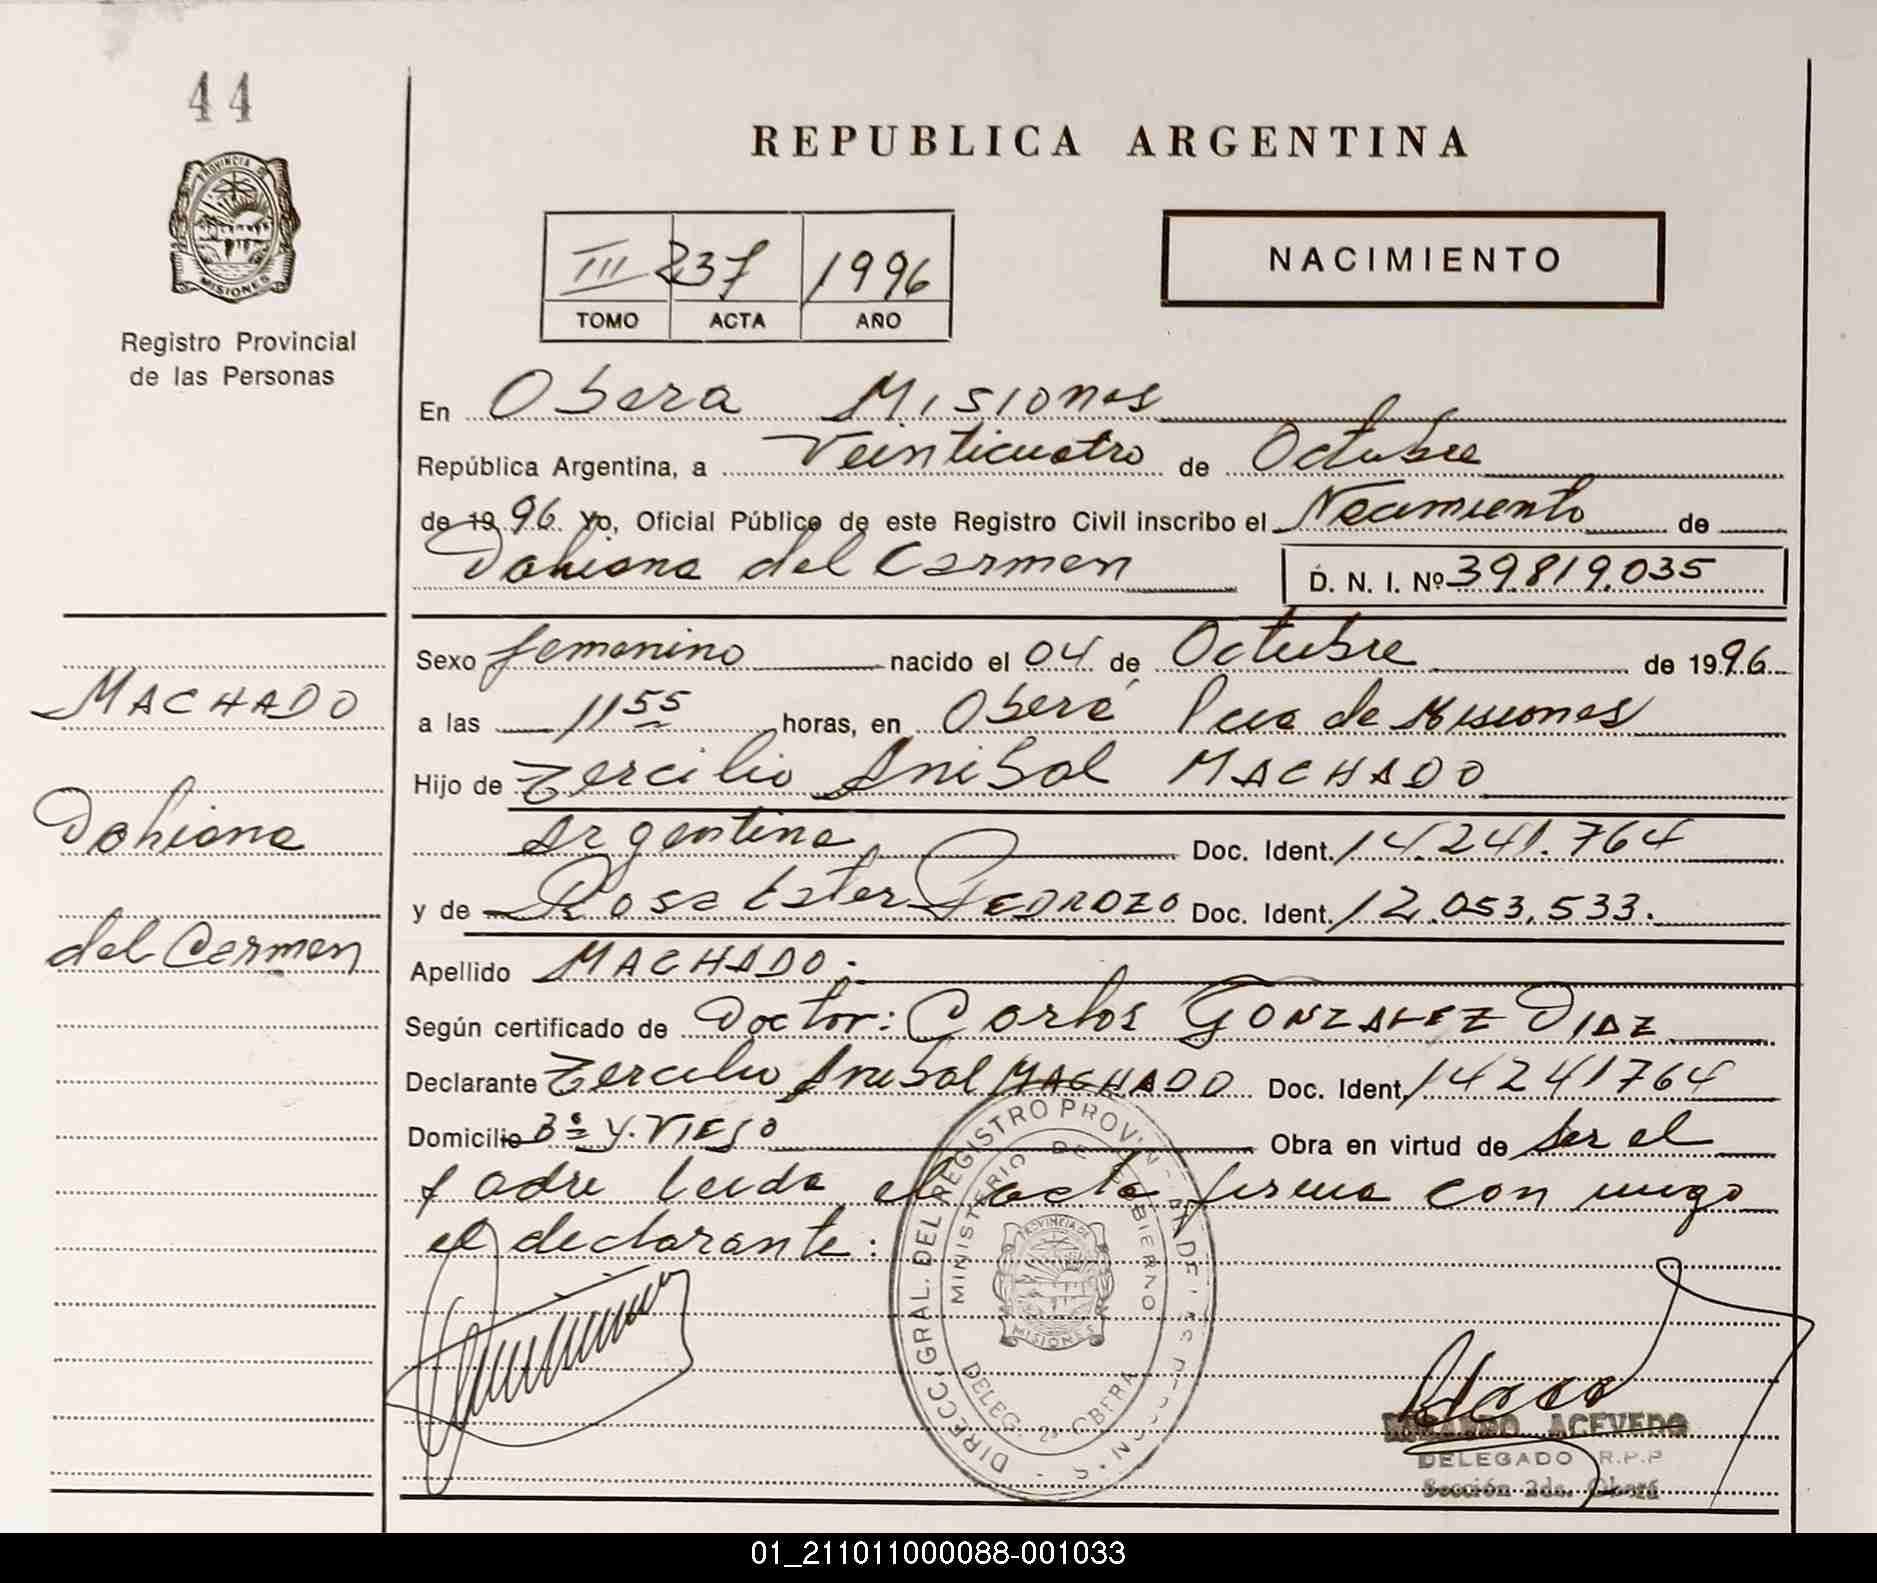 44
PROVINCIA DE
MISIONES
Registro Provincial
de las Personas
REPUBLICA ARGENTINA
III 237 1996
TOMO ACTA AÑO
NACIMIENTO
En Obera Misiones
República Argentina, a Veinticuatro de Octubre
de 1996 Yo, Oficial Público de este Registro Civil inscribo el Nacimiento de
Dahiana del Carmen D. N. I. Nº 39.819.035
Sexo femenino nacido el 04 de Octubre de 1996
a las 11 55 horas, en Oberá Pcia de Misiones
Hijo de Tercilio Anibal MACHADO
Argentina Doc. Ident. 14.241.764
y de Rosa Ester PEDROZO Doc. Ident. 12.053.533.
Apellido MACHADO.
Según certificado de Doctor: Carlos GONZALEZ DIAZ
Declarante Tercilio Anibal MACHADO Doc. Ident. 14241764
Domicilio Bº Y. VIEJO Obra en virtud de ser el
padre leida el acta firma con migo
el declarante:
MACHADO
Dahiana
del Carmen
DIRECC. GRAL. DEL REGISTRO PROVIN
MINISTERIO DE GOBIERNO
PROVINCIA DE
MISIONES
DELEG. 2ª OBERA
ACEVEDO
DELEGADO R.P.P
Sección 2da. Oberá
01_211011000088-001033